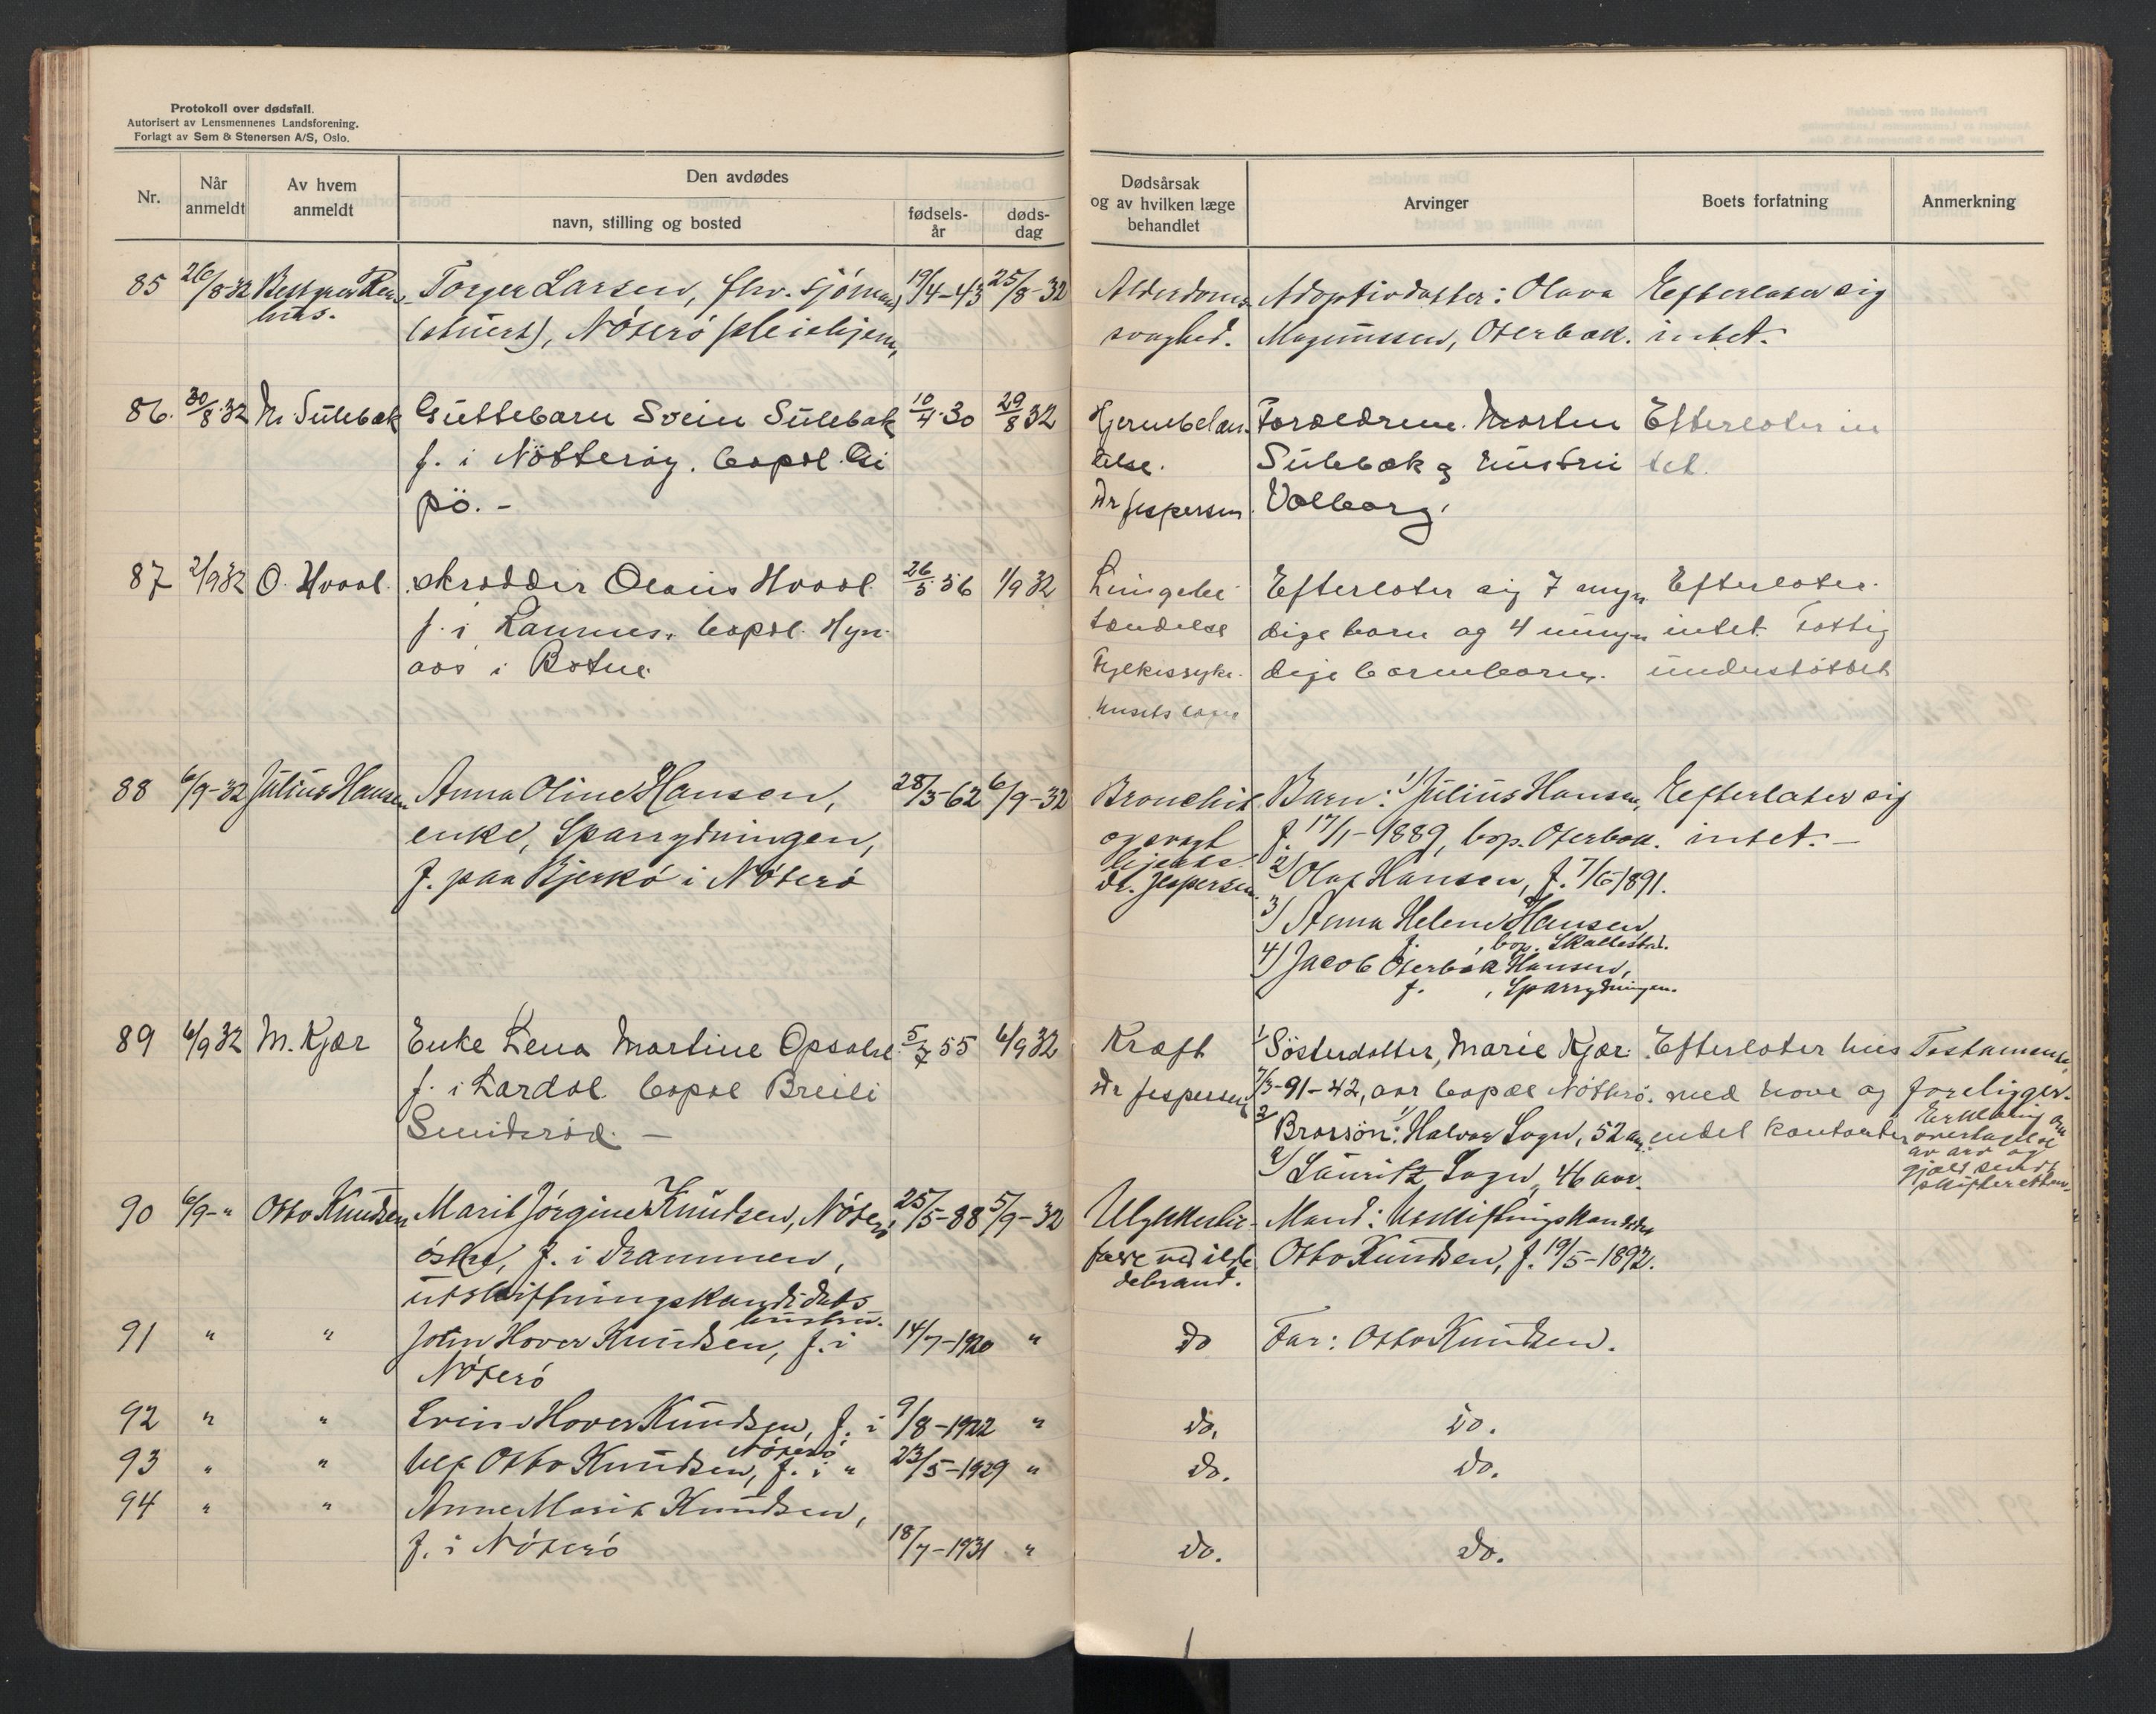 Protokoll over dødsfall.
Autorisert av Lensmennenes Landsforening.
Forlagt av Sem & Stenersen A/S, Oslo.
Nr.
Når anmeldt
Av hvem anmeldt
Den avdødes
navn, stilling og bosted
fødselsår
dødsdag
Dødsårsak og av hvilken læge behandlet
Arvinger
Boets forfatning
Anmerkning
85 26/8-32 Torger Larsen, fhv. sjömand 19/4-43 25/8-32 Alderdoms- Adoptivdatter: Olava Efterlater sig
(stuert), Nöterö pleiehjem, svaghed. Magnussen, Oterbæk. intet.
86. 30/8-32 M. Sulebak Guttebarn Svein Sulebak 10/4-30 29/8 32 Foreldrene Morten Efterlater in
f. i Nötteröy. bopæl telse. Sulebak og hustru tet.
pö. - Dr Jespersen Valborg.
87 2/9 32 O. Hvaal. skrædder Olaus Hvaal 26/5-56 1/9 32 Lungebe Efterlater sig 7 myn Efterlater
f. i Ramnes. bopæl tændelse dige barn og 4 umyn intet. Fattig
i Botne Fylkessyke- dige barnebarn. understöttet
husets læge
88 6/9-32 Julius Hansen Anna Oline Hansen, 28/3-62 6/9-32 Bronchit Barn: 1) Julius Hansen, Efterlater sig
enke, Sparrydningen, og svagt f. 17/1-1889, bop. Oterbæk. intet. -
f. paa Bjerkö i Nöterö hjerte. 2) Olaf Hansen, f. 7/6-1891.
Dr. Jespersen. 3) Anna Helene Hansen,
f. , bop. Skallestad.
4) Jacob Oterbæk Hansen,
f. , Sparrydningen.
89 6/9 32 M. Kjær Enke Lena Martine Opsahl 5/7 55 6/9 32 Kræft 1) Sösterdatter, Marie Kjær Efterlater hus Testamente
f. i Lardal bopæl Breili Dr Jespersen 7/3-91-42, aar bopæl Nötterö. med have og foreligger.
Smideröd. - 2) Brorsön: 1) Halvor Sogn, 52 aar. endel kontanter Erklæring om
overtagelse
av arv og
gjæld sendt
skifteretten.
2) Lauritz Sogn, 46 aar.
90 6/9-" Otto Knudsen Marit Jörgine Knudsen, Nöterö 25/5-88 5/9-32 Ulykkestil- Mand: Utskiftningskandidat
östre, f. i Drammen, fælde ved ilde Otto Knudsen, f. 19/5-1892.
utskiftningskandidats debrand.
hustru.
91 " " John Hover Knudsen, f. i 14/7-1920 " do Far: Otto Knudsen.
Nöterö
92 " " Hover Knudsen, f. i 9/8-1922 " do. do.
Nöterö
93 " " Otto Knudsen, f. i " 23/5-1929 " do. do.
94 " " Anne Marit Knudsen,
f. i Nöterö 18/7-1931 " do. do.